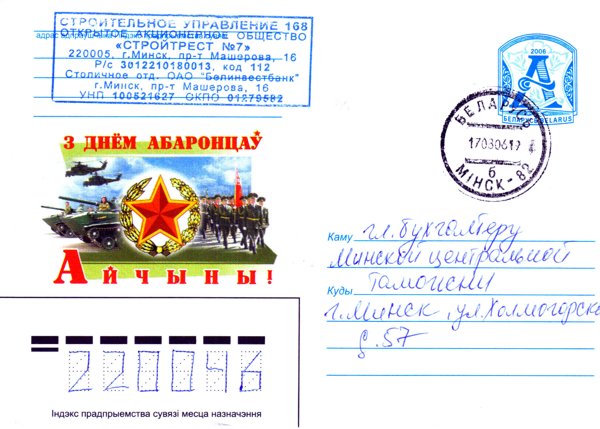 СТРОИТЕЛЬНОЕ УПРАВЛЕНИЕ 168
ОТКРЫТОЕ АКЦИОНЕРНОЕ ОБЩЕСТВО
«СТРОЙТРЕСТ №7»
220005, г.Минск, пр-т Машерова, 16
Р/с 3012210180013, код 112
Столичное отд. ОАО "Белинвестбанк"
г.Минск, пр-т Машерова, 16
УНП 100521627 ОКПО 01279582
2006
А
БЕЛАРУСЬ BELARUS
БЕЛАРУСЬ
170306 19
б
МІНСК-82
З ДНЁМ АБАРОНЦАЎ
АЙЧЫНЫ!
Каму гл. бухгалтеру
Минской центральной
таможни
Куды
г. Минск, ул. Холмогорская
д. 57
220046
Індэкс прадпрыемства сувязі месца назначэння